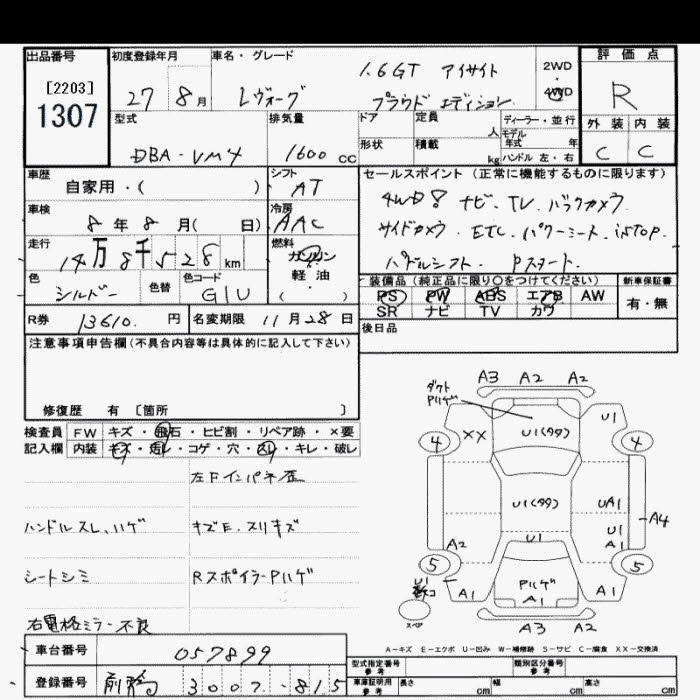 出品番号 初度登録年月 車名・グレード 評価点
[2203] 1.6GT アイサイト 2WD・4WD
1307 27 8月 レヴォーグ プラウド エディション R
型式 排気量 ドア 定員 人 ディーラー・並行 外装 内装
モデル年式 年
DBA-VM4 1600cc 形状 積載 kg ハンドル 左・右 C C
車歴 シフト セールスポイント (正常に機能するものに限ります)
自家用・( ) AT 4WD8 ナビ、TV、バックカメラ
車検 冷房 サイドカメラ、ETC、パワーシート、iSTOP.
8年 8月( 日) AAC パドルシフト、Pスタート.
走行 燃料
14万8千528km ガソリン
色 色替 色コード 軽油 装備品(純正品に限り○をつけてください) 新車保証書
シルバー G1U ( ) PS PW ABS エアB AW 有・無
SR ナビ TV カワ
R券 13610.円 名変期限 11月28日 後日品
注意事項申告欄(不具合内容等は具体的に記入して下さい)
修復歴 有 〔箇所 〕
検査員 FW キズ・飛石・ヒビ割・リペア跡・×要
記入欄 内装 キズ・汚レ・コゲ・穴・スレ・キレ・破レ
左Fインパネ歪
ハンドルスレ、ハゲ キズE.スリキズ
シートシミ RスポイラーPハゲ
右電格ミラー不良
車台番号 057899
登録番号 前橋 3007-815
A3 A2 A2
ダクト
Pハゲ
U1
XX U1(タタ)
4 4
U1(タタ) UA1
A4
U1 U1
A2 A1
5 5
U1 Pハゲ
A1 A1 A1
スペア
A3 A2
A−キズ E−エクボ U−凹み W−補修跡 S−サビ C−腐食 XX−交換済
型式指定番号 参考 類別区分番号 参考
車庫証明用 参考 長さ cm 幅 cm 高さ cm